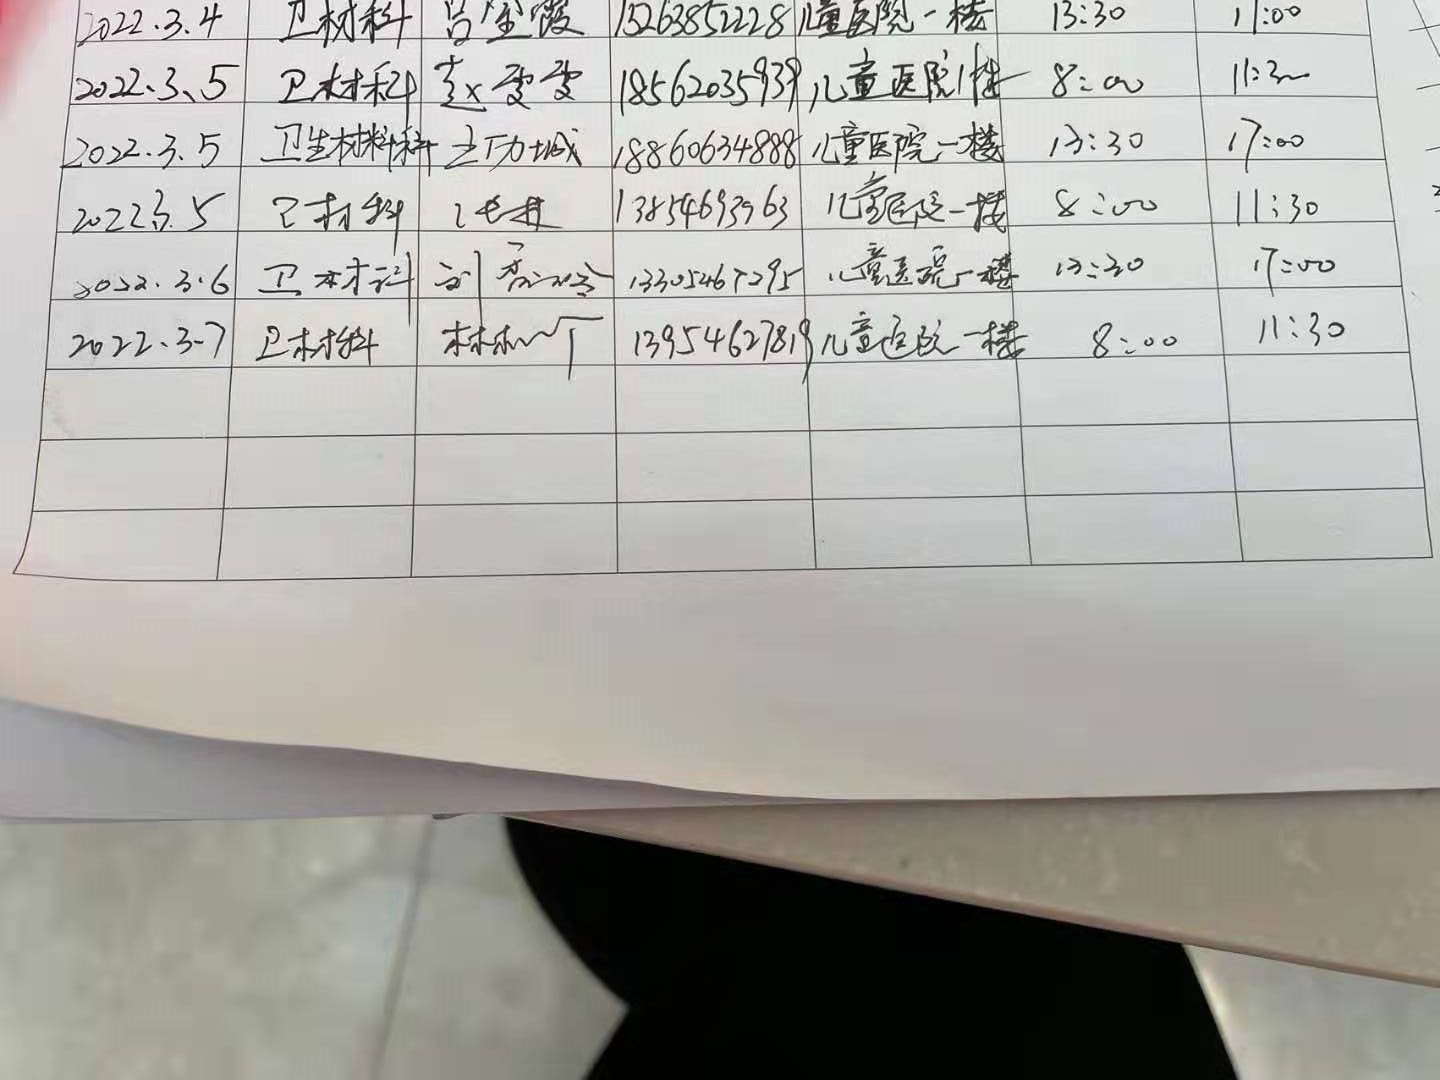 2022.3.4 卫材科 吕金霞 15263852228 儿童医院一楼 13:30 17:00
2022.3.5 卫材科 赵雯雯 18562035939 儿童医院1楼 8:00 11:30
2022.3.5 卫生材料科 王功城 18860634888 儿童医院一楼 13:30 17:00
2022.3.5 卫材科 13854693963 儿童医院一楼 8:00 11:30
2022.3.6 卫材科 刘 13305467295 儿童医院一楼 13:30 17:00
2022.3.7 卫材科 13954627819 儿童医院一楼 8:00 11:30